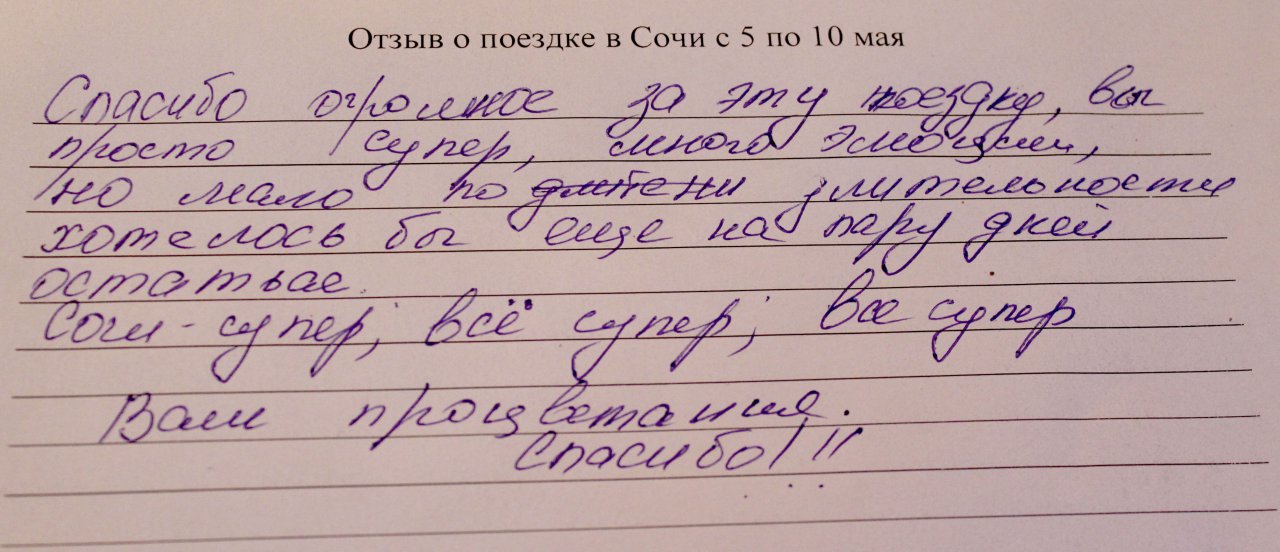 Отзыв о поездке в Сочи с 5 по 10 мая
Спасибо огромное за эту поездку, вы
просто супер, много эмоций,
но мало по длительности
хотелось бы еще на пару дней
остатьс
Сочи - супер, всё супер, все супер
Вам процветания.
Спасибо!!!